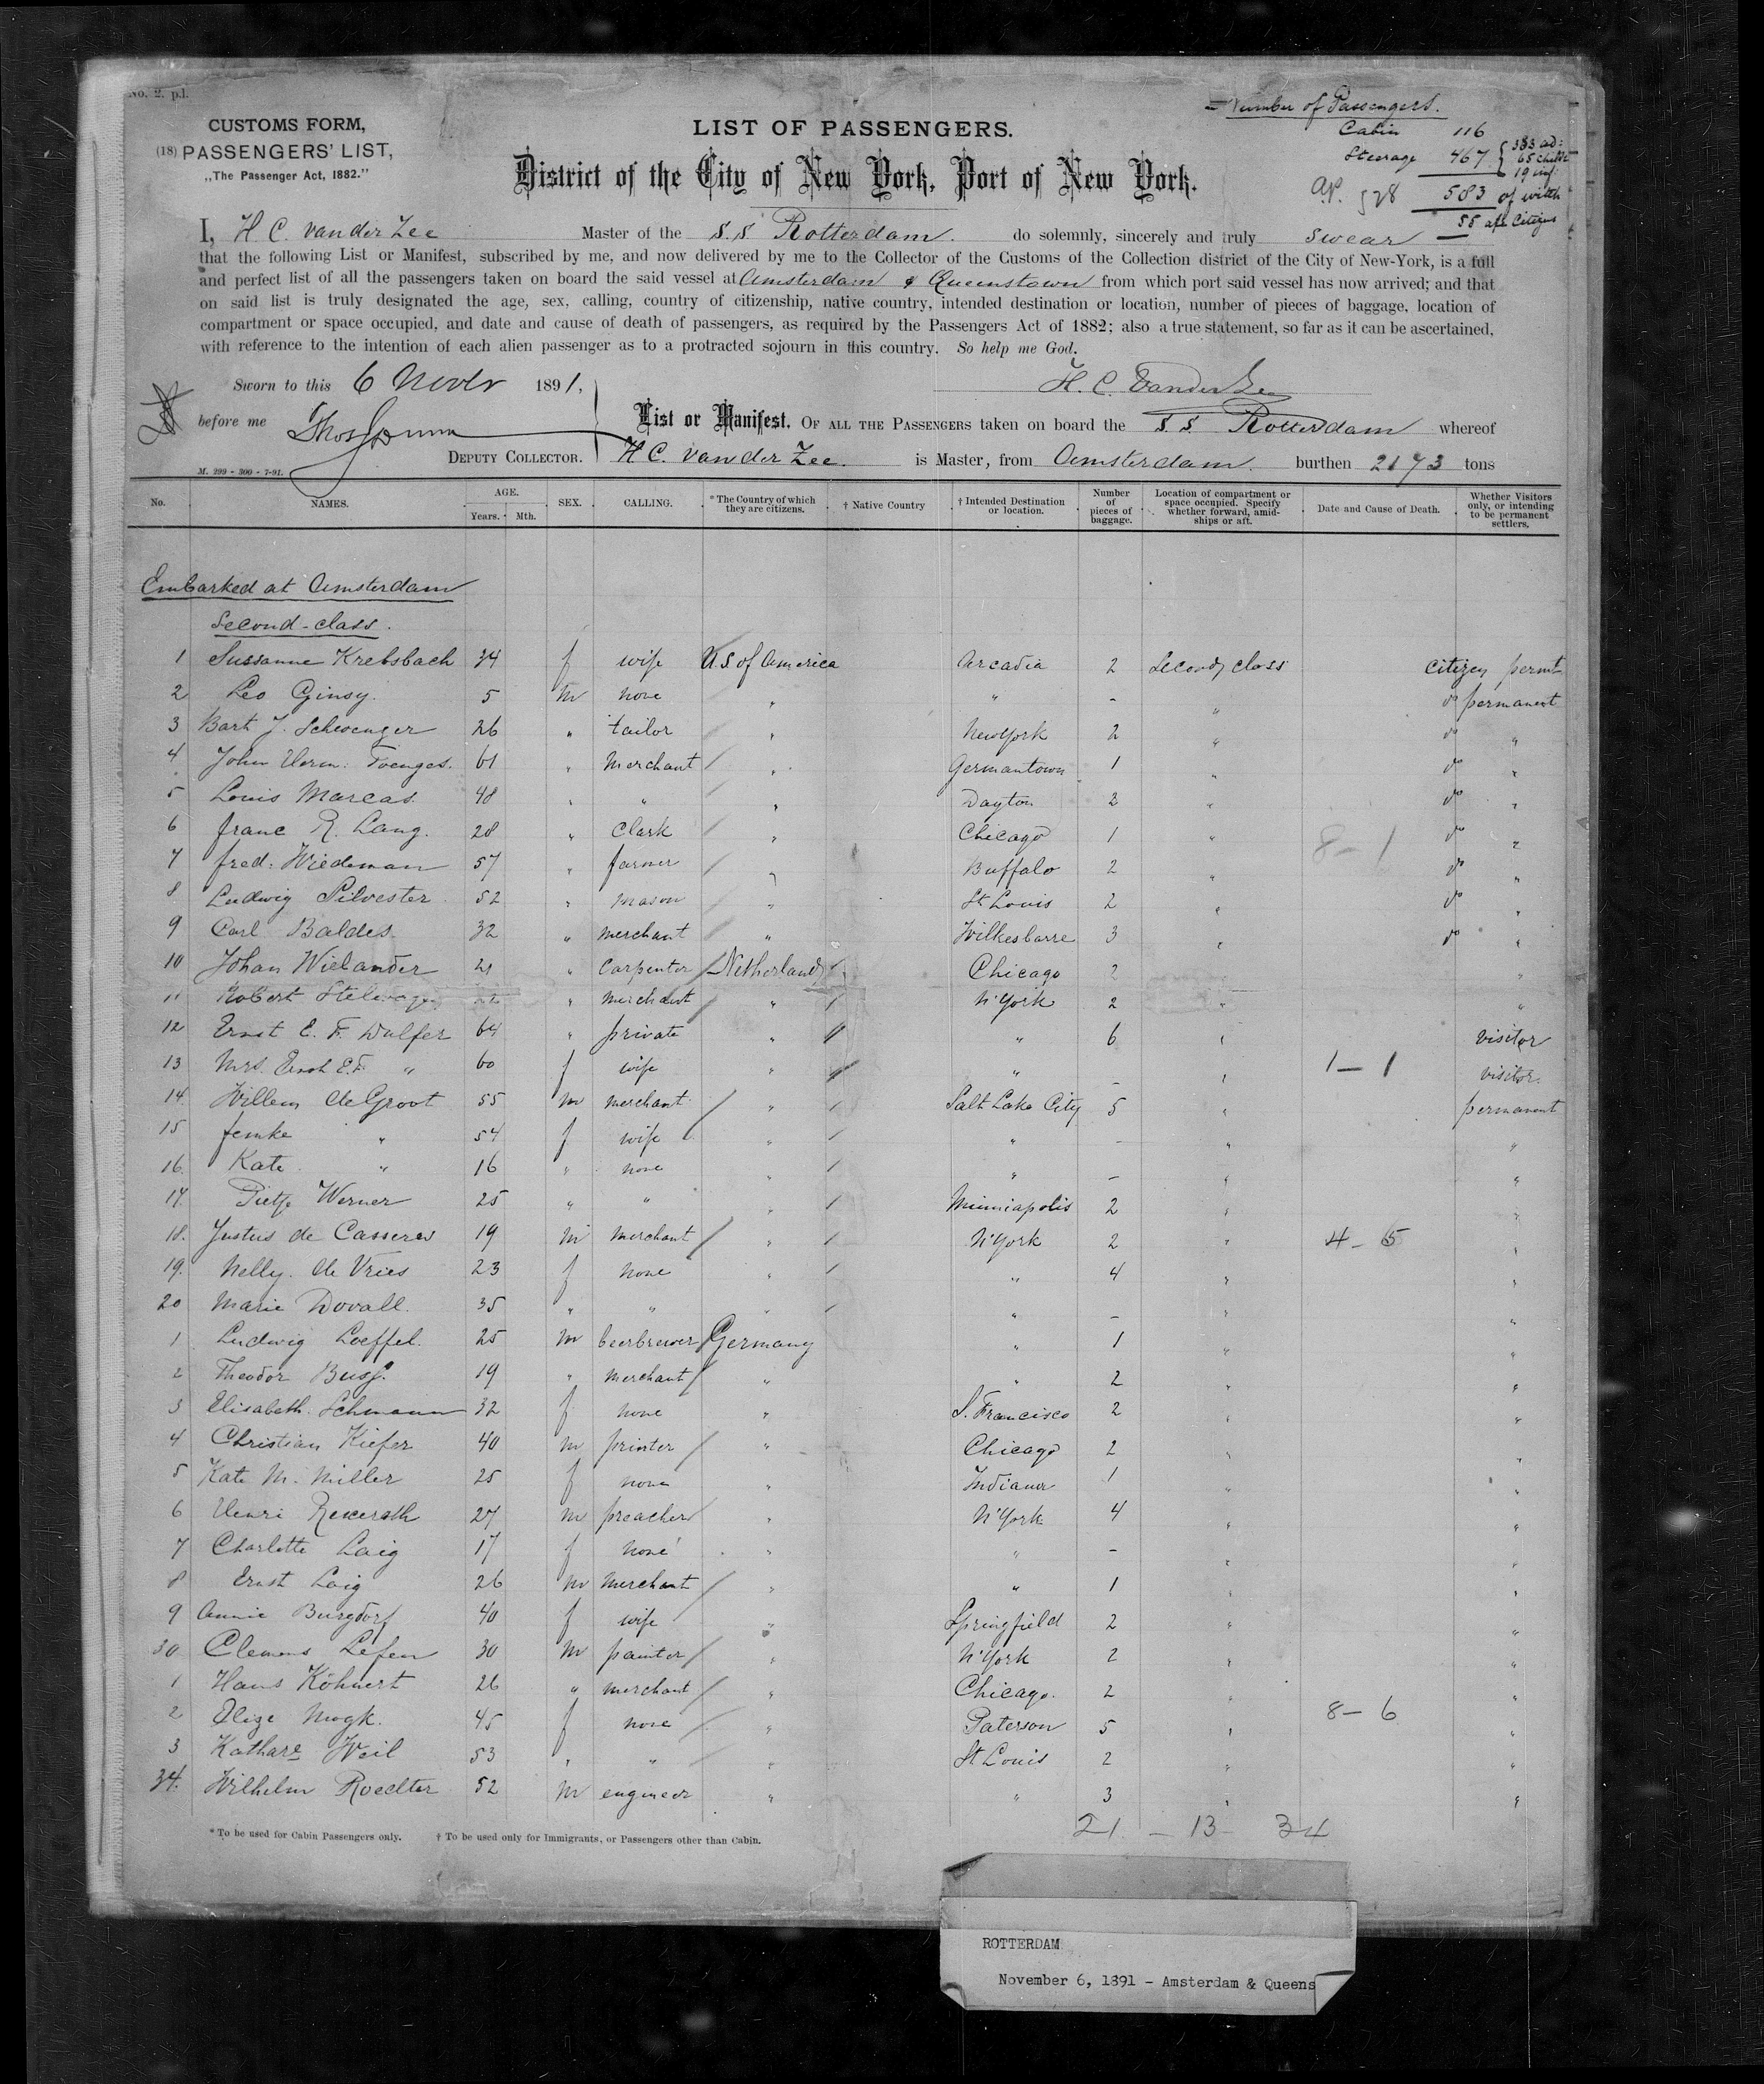 No. 2. p.l.
CUSTOMS FORM,
(18) PASSENGERS' LIST,
„The Passenger Act, 1882."
LIST OF PASSENGERS.
District of the City of New York, Port of New York.
Number of Passengers.
Cabin 116
Steerage 467 { 383 ad: 65 child 19 inf
528 583 of with
55 Citizens
I, H. C. van der Zee Master of the S.S. Rotterdam do solemnly, sincerely and truly swear
that the following List or Manifest, subscribed by me, and now delivered by me to the Collector of the Customs of the Collection district of the City of New-York, is a full
and perfect list of all the passengers taken on board the said vessel at Amsterdam & Queenstown from which port said vessel has now arrived; and that
on said list is truly designated the age, sex, calling, country of citizenship, native country, intended destination or location, number of pieces of baggage, location of
compartment or space occupied, and date and cause of death of passengers, as required by the Passengers Act of 1882; also a true statement, so far as it can be ascertained,
with reference to the intention of each alien passenger as to a protracted sojourn in this country. So help me God.
Sworn to this 6 Novbr 1891, H. C. Vander Zee
before me
List or Manifest. OF ALL THE PASSENGERS taken on board the S.S. Rotterdam whereof
DEPUTY COLLECTOR. H C. van der Zee. is Master, from Amsterdam. burthen 2173 tons
M. 299 - 300 - 7-91.
No. NAMES. AGE. Years. Mth. SEX. CALLING. * The Country of which they are citizens. † Native Country † Intended Destination or location. Number of pieces of baggage. Location of compartment or space occupied. Specify whether forward, amidships or aft. Date and Cause of Death. Whether Visitors only, or intending to be permanent settlers.
Embarked at Amsterdam
Second-class.
1 Sussanne Krebsbach 34 f wife U.S of America Arcadia 2 Second class citizen permt
2 Leo Ginsy. 5 m none " " - " do permanent
3 Bart J. Schwenger 26 " tailor " New York 2 " do "
4 John Herm. Toenges. 61 " Merchant " Germantown 1 " do "
5 Louis Marcas 48 " " " Dayton 2 " do "
6 franc R. Lang. 28 " Clark " Chicago 1 " 8-1 do "
7 fred. Wiedeman 57 " farmer " Buffalo 2 " do "
8 Ludwig Silvester 52 " mason " St Louis 2 " do "
9 Carl Baldes 32 " merchant " Wilkesbarre 3 " do "
10 Johan Wielander 21 " Carpenter Netherland Chicago 2 " "
11 Robert " merchant " N'York 2 " "
12 Ernst E. F. Dulfer 64 " private " " 6 " visitor
13 Mrs. Ernst E.F. " 60 f wife " " - " 1-1 visitor.
14. Willem de Groot 55 m merchant " Salt Lake City 5 " permanent
15 femke " 54 f wife " " - " "
16. Kate " 16 " none " " - " "
17. Pietje Werner 25 " " " Minniapolis 2 " "
18. Justus de Casseres 19 m merchant " N'York 2 " 4-5 "
19. Nelly. de Vries 23 f none " " 4 " "
20 Marie Dovall. 35 " " " " - " "
1 Ludwig Loeffel. 25 m beerbrewer Germany " 1 " "
2 Theodor Buss. 19 " Merchant " " 2 " "
3 Elisabeth. Lehmann 32 f none " S. Francisco 2 " "
4 Christian Kiefer 40 m printer " Chicago 2 " "
5 Kate M. Miller 25 f none " Indiana 1 " "
6 Henri 27 m preacher " N'York 4 " "
7 Charlotte Laig 17 f none " " - " "
8 Ernst Laig 26 m Merchant " " 1 " "
9 Annie Burgdorf 40 f wife " Springfield 2 " "
30 Clemens Lefen 30 m painter " N'York 2 " "
1 Hans Köhnert 26 " merchant " Chicago. 2 " "
2 Elize Mogk. 45 f none " Paterson 5 " 8-6 "
3 Kathare Weil 53 " " " St Louis 2 " "
34. Wilhelm Roedter 52 m engineer " " 3 " "
21 - 13 - 34
* To be used for Cabin Passengers only. † To be used only for Immigrants, or Passengers other than Cabin.
ROTTERDAM
November 6, 1891 - Amsterdam & Queens